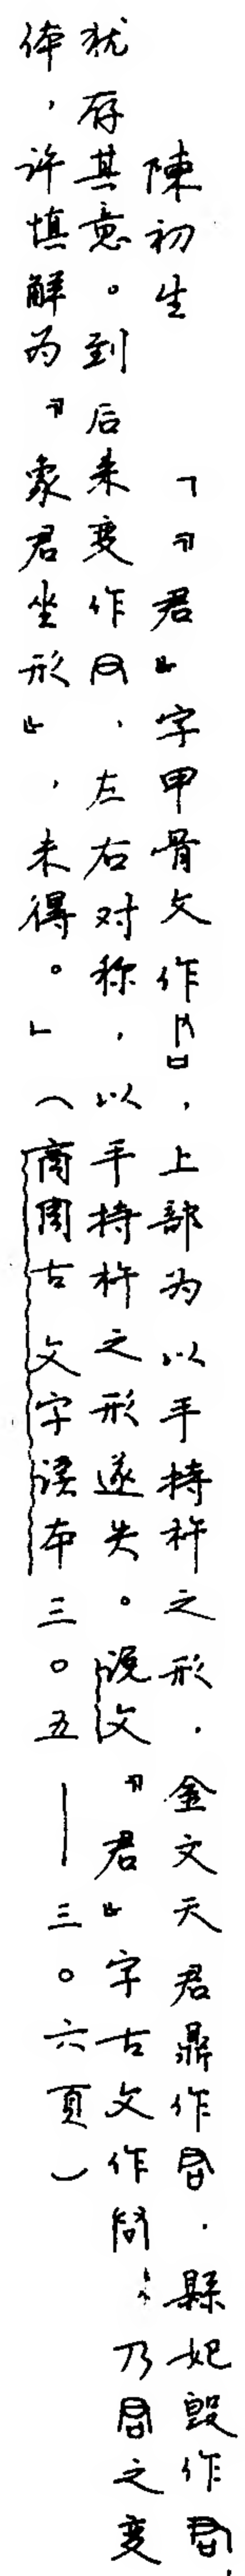 陳初生　「『君』字甲骨文作，上部为以手持杵之形，金文天君鼎作，縣妃毁作，
犹存其意。到后来变作，左右对称，以手持杵之形遂失。说文『君』字古文作，乃之变
体，许慎解为『象君坐形』，未得。」（商周古文字读本三〇五——三〇六頁）